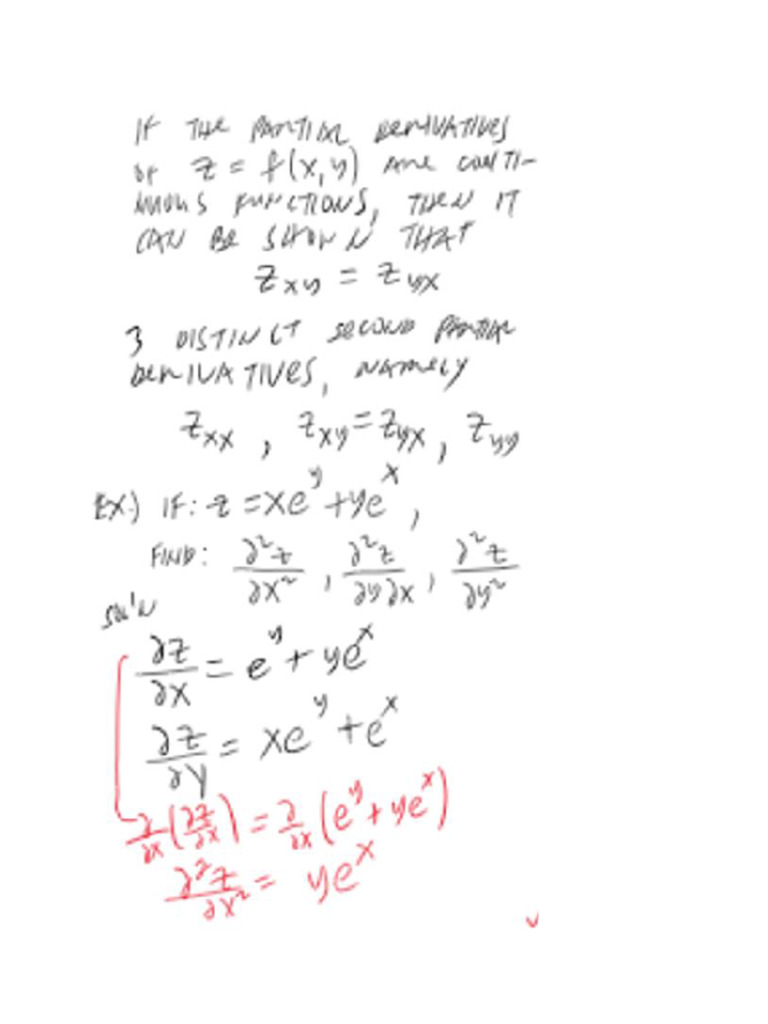 IF THE PARTIAL DERIVATIVES
OF z = f(x, y) ARE CONTI-
NUOUS FUNCTIONS, THEN IT
CAN BE SHOWN THAT
z_xy = z_yx
3 DISTINCT SECOND PARTIAL
DERIVATIVES, NAMELY
z_xx , z_xy = z_yx , z_yy
EX.) IF: z = xe^y + ye^x ,
FIND: ∂²z/∂x² , ∂²z/∂y∂x , ∂²z/∂y²
SOL'N
∂z/∂x = e^y + ye^x
∂z/∂y = xe^y + e^x
∂/∂x (∂z/∂x) = ∂/∂x (e^y + ye^x)
∂²z/∂x² = ye^x